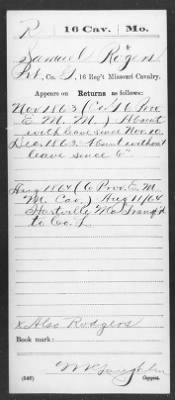 R 16 Cav. Mo.
Samuel Rogers
Pvt., Co. I, 16 Reg't Missouri Cavalry.
Appears on Returns as follows:
Nov 1863 (Co. G 6 Prov
E. M. M.) Absent
with leave since Nov. 10.
Dec. 1863. Absent without
leave since 6"
Aug 1864 (6 Prov. E. M.
M. Cav.) Aug 11/64
Hartville Mo. Transf'd
to Co. I.
x Also Rodgers
Book mark:
(546) Copyist.